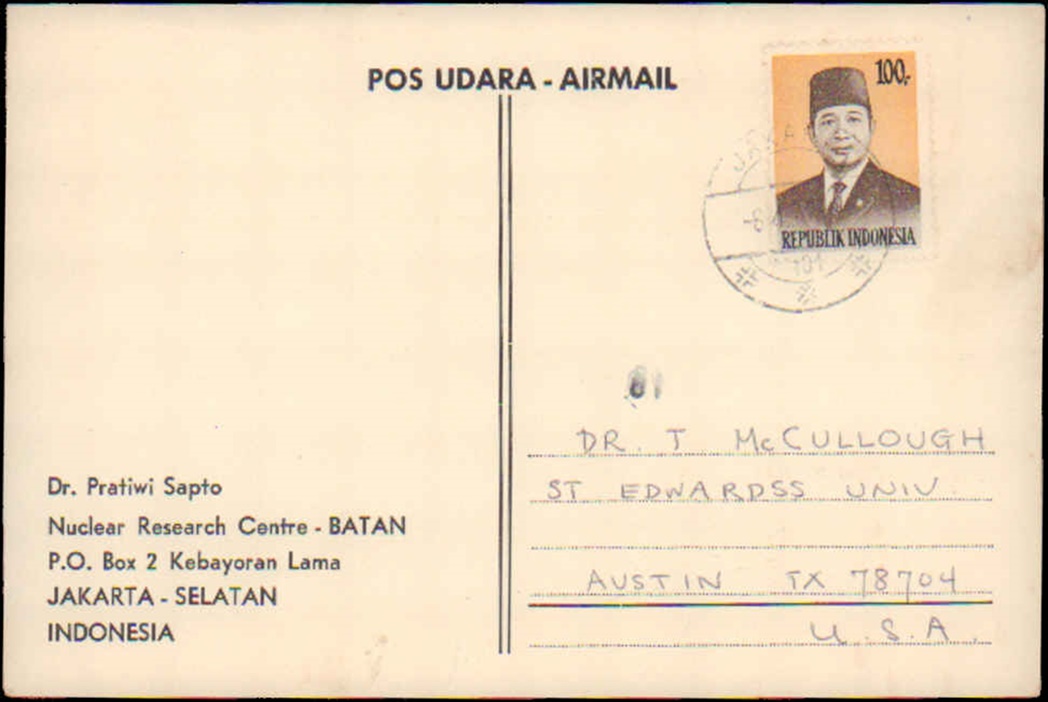 POS UDARA - AIRMAIL
100,-
REPUBLIK INDONESIA
101
DR. T McCULLOUGH
ST EDWARDSS UNIV.
AUSTIN TX 78704
U.S.A.
Dr. Pratiwi Sapto
Nuclear Research Centre - BATAN
P.O. Box 2 Kebayoran Lama
JAKARTA - SELATAN
INDONESIA